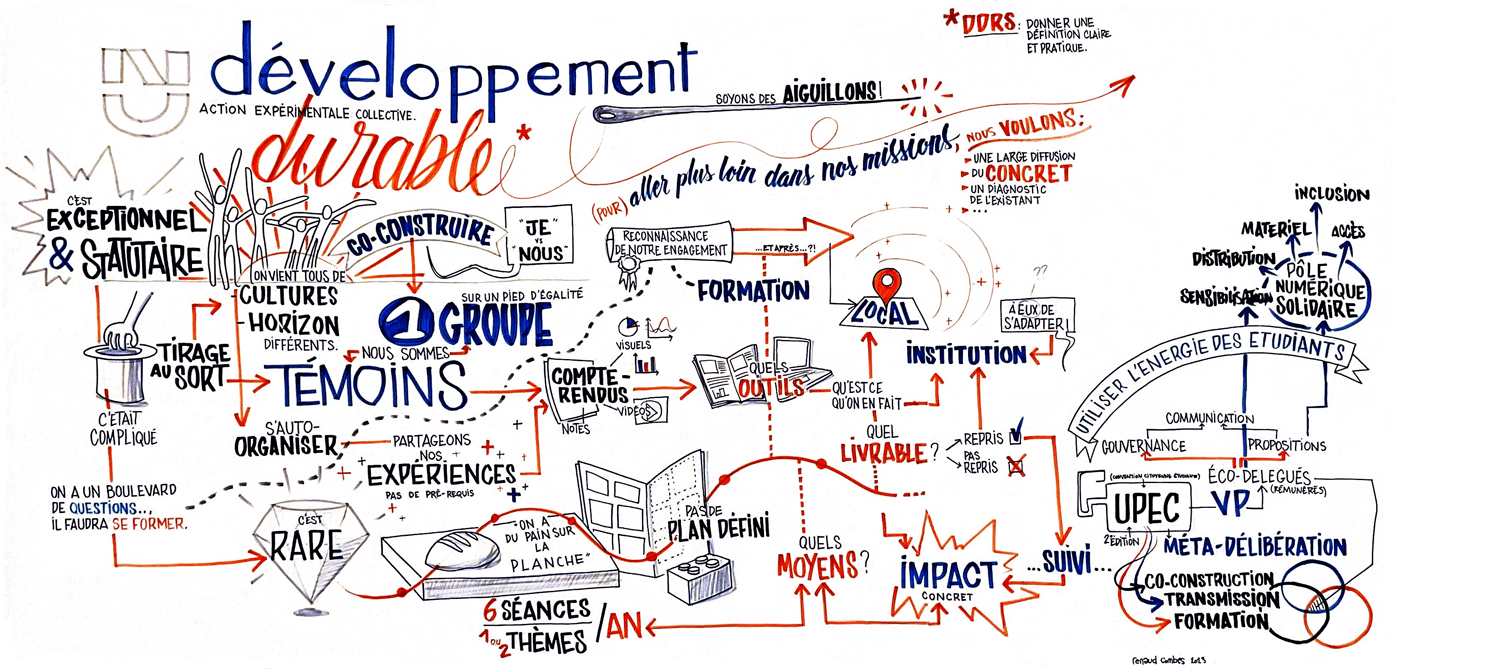 NU
développement
ACTION EXPÉRIMENTALE COLLECTIVE.
durable*
*DDRS: DONNER UNE
DÉFINITION CLAIRE
ET PRATIQUE.
SOYONS DES AIGUILLONS!
(POUR) aller plus loin dans nos missions,
NOUS VOULONS:
UNE LARGE DIFFUSION
DU CONCRET
UN DIAGNOSTIC
DE L'EXISTANT
...
C'EST
EXCEPTIONNEL
& STATUTAIRE
CO-CONSTRUIRE
"JE"
VS
"NOUS"
ON VIENT TOUS DE
-CULTURES
-HORIZON
DIFFÉRENTS.
SUR UN PIED D'ÉGALITÉ
1 GROUPE
NOUS SOMMES
TÉMOINS
TIRAGE
AU SORT
C'ÉTAIT
COMPLIQUÉ
S'AUTO-
ORGANISER
PARTAGEONS
NOS
EXPÉRIENCES
PAS DE PRÉ-REQUIS
ON A UN BOULEVARD
DE QUESTIONS..,
IL FAUDRA SE FORMER.
C'EST
RARE
"ON A
DU PAIN SUR
LA
PLANCHE"
6 SÉANCES
1 OU 2 THÈMES /AN
RECONNAISSANCE
DE NOTRE ENGAGEMENT
...ET APRÈS...?!
FORMATION
VISUELS
COMPTE-
RENDUS
VIDÉOS
NOTES
QUELS
OUTILS
QU'EST CE
QU'ON EN FAIT
LOCAL
??
À EUX DE
S'ADAPTER!
INSTITUTION
QUEL
LIVRABLE?
REPRIS
PAS
REPRIS
PAS DE
PLAN DÉFINI
QUELS
MOYENS?
IMPACT
CONCRET
...SUIVI...
INCLUSION
MATERIEL
ACCÈS
DISTRIBUTION
SENSIBILISATION
PÔLE
NUMÉRIQUE
SOLIDAIRE
UTILISER L'ENERGIE DES ETUDIANTS
COMMUNICATION
GOUVERNANCE
PROPOSITIONS
ÉCO-DELEGUÉS
(RÉMUNÉRÉS)
(CONVENTION CITOYENNE ÉTUDIANTE)
UPEC
VP
2 EDITION
MÉTA-DÉLIBÉRATION
CO-CONSTRUCTION
TRANSMISSION
FORMATION
renaud combes 2023